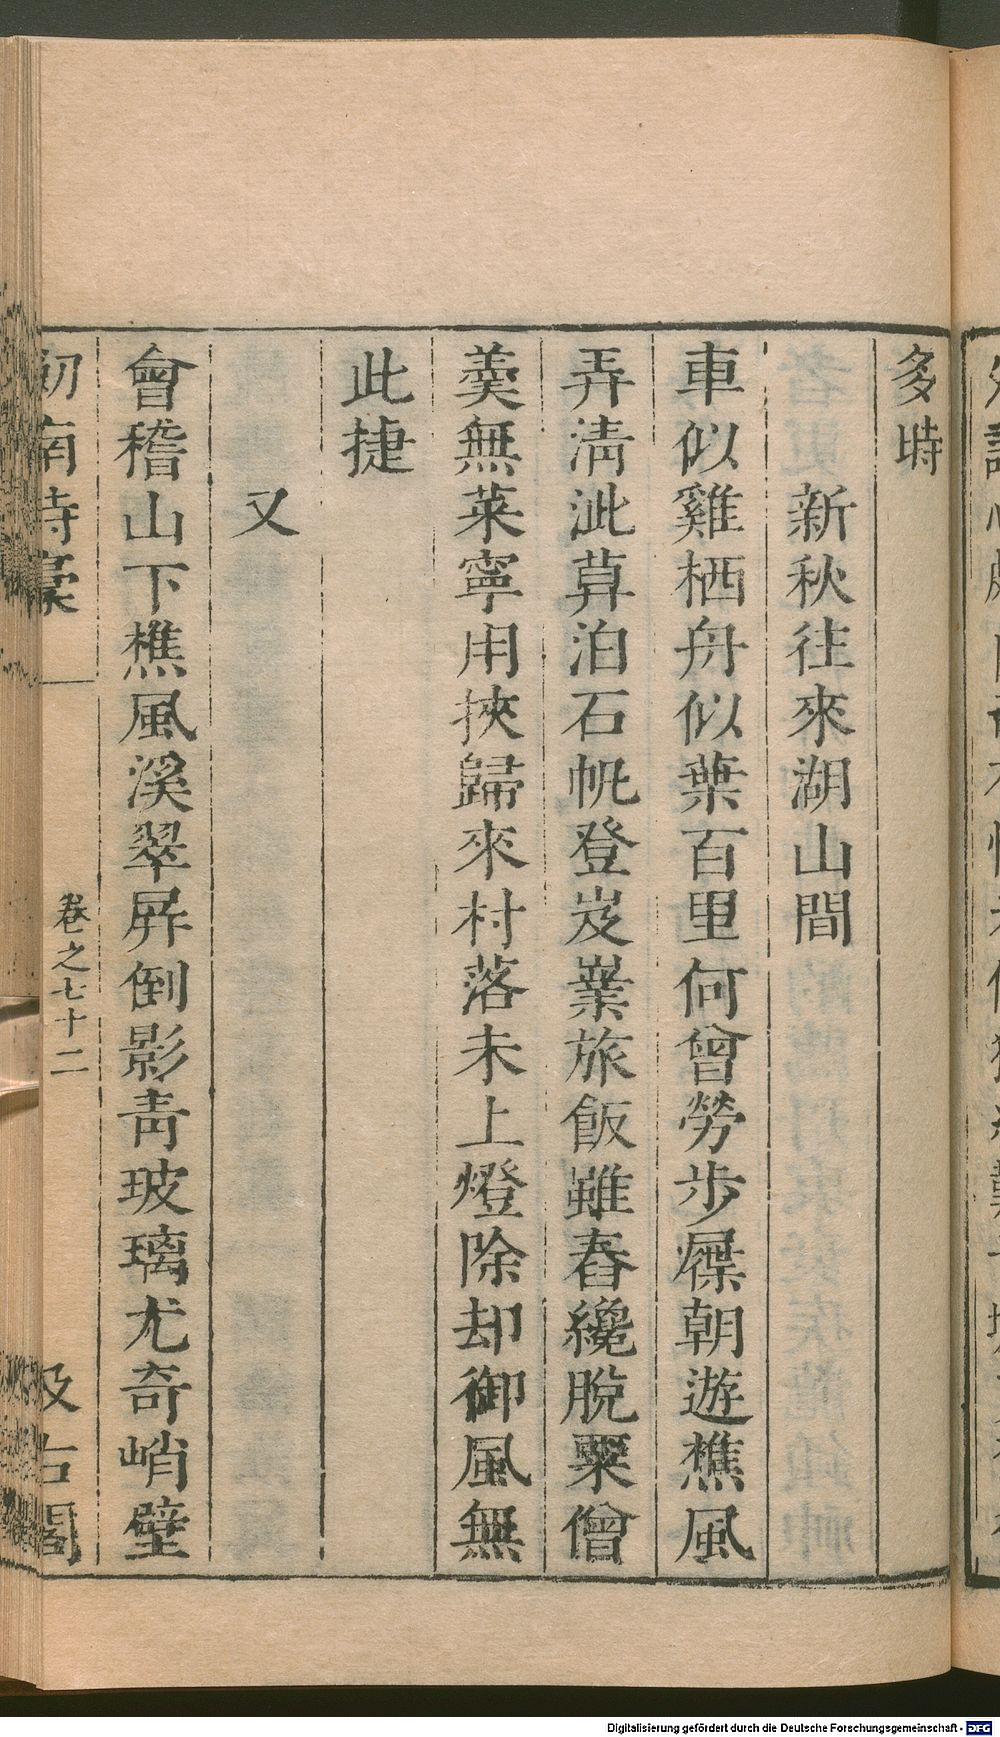 多時
新秋往來湖山間
車似雞栖舟似葉百里何曾勞步屧朝遊樵風
弄淸泚莫泊石帆登岌嶪旅飯雖舂纔脫粟僧
羹無菜寧用挾歸來村落未上燈除却御風無
此捷
又
會稽山下樵風溪翠屛倒影靑玻璃尤奇峭壁
劒南詩稾
卷之七十二
汲古閣
Digitalisierung gefördert durch die Deutsche Forschungsgemeinschaft - DFG